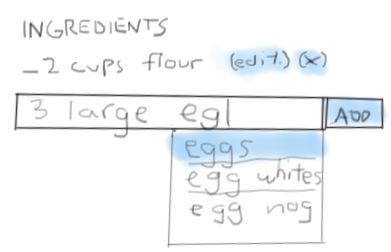 INGREDIENTS
- 2 cups flour (edit.) (x)
3 large eg| ADD
eggs
egg whites
egg nog